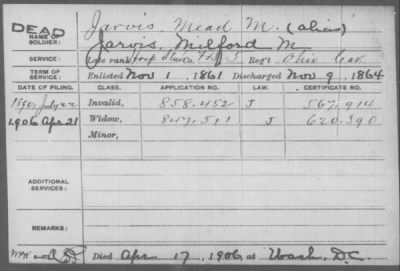 DEAD Jarvis, Mead M. (alias)
NAME OF SOLDIER: Jarvis, Milford M.
SERVICE: Late rank Hosp Stew Co. F & S 5 Reg't Ohio Cav.
TERM OF SERVICE: Enlisted Nov 1, 1861 Discharged Nov. 9, 1864
DATE OF FILING. CLASS. APPLICATION NO. LAW. CERTIFICATE NO.
1890, July 22 Invalid, 858.452 J 567.914
1906 Apr. 21 Widow, 847.511 J 620.390
Minor,
ADDITIONAL SERVICES:
REMARKS:
Died Apr. 17, 1906 at Wash, D.C.